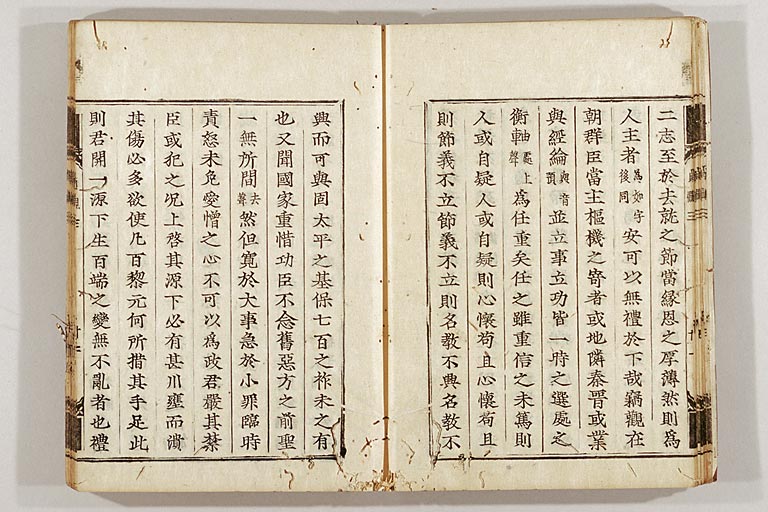 二志至於去就之節當緣恩之厚薄然則為
人主者為如字後同安可以無禮於下哉竊觀在
朝群臣當主樞機之寄者或地隣秦晉或業
與經綸與音預並立事立功皆一時之選處之
衡軸處上聲為任重矣任之雖重信之未篤則
人或自疑人或自疑則心懷苟且心懷苟且
則節義不立節義不立則名教不興名教不
興而可與固太平之基保七百之祚未之有
也又聞國家重惜功臣不念舊惡方之前聖
一無所間去聲然但寬於大事急於小罪臨時
責怒未免愛憎之心不可以為政君嚴其禁
臣或犯之况上啓其源下必有甚川壅而潰
其傷必多欲使凡百黎元何所措其手足此
則君開一源下生百端之變無不亂者也禮